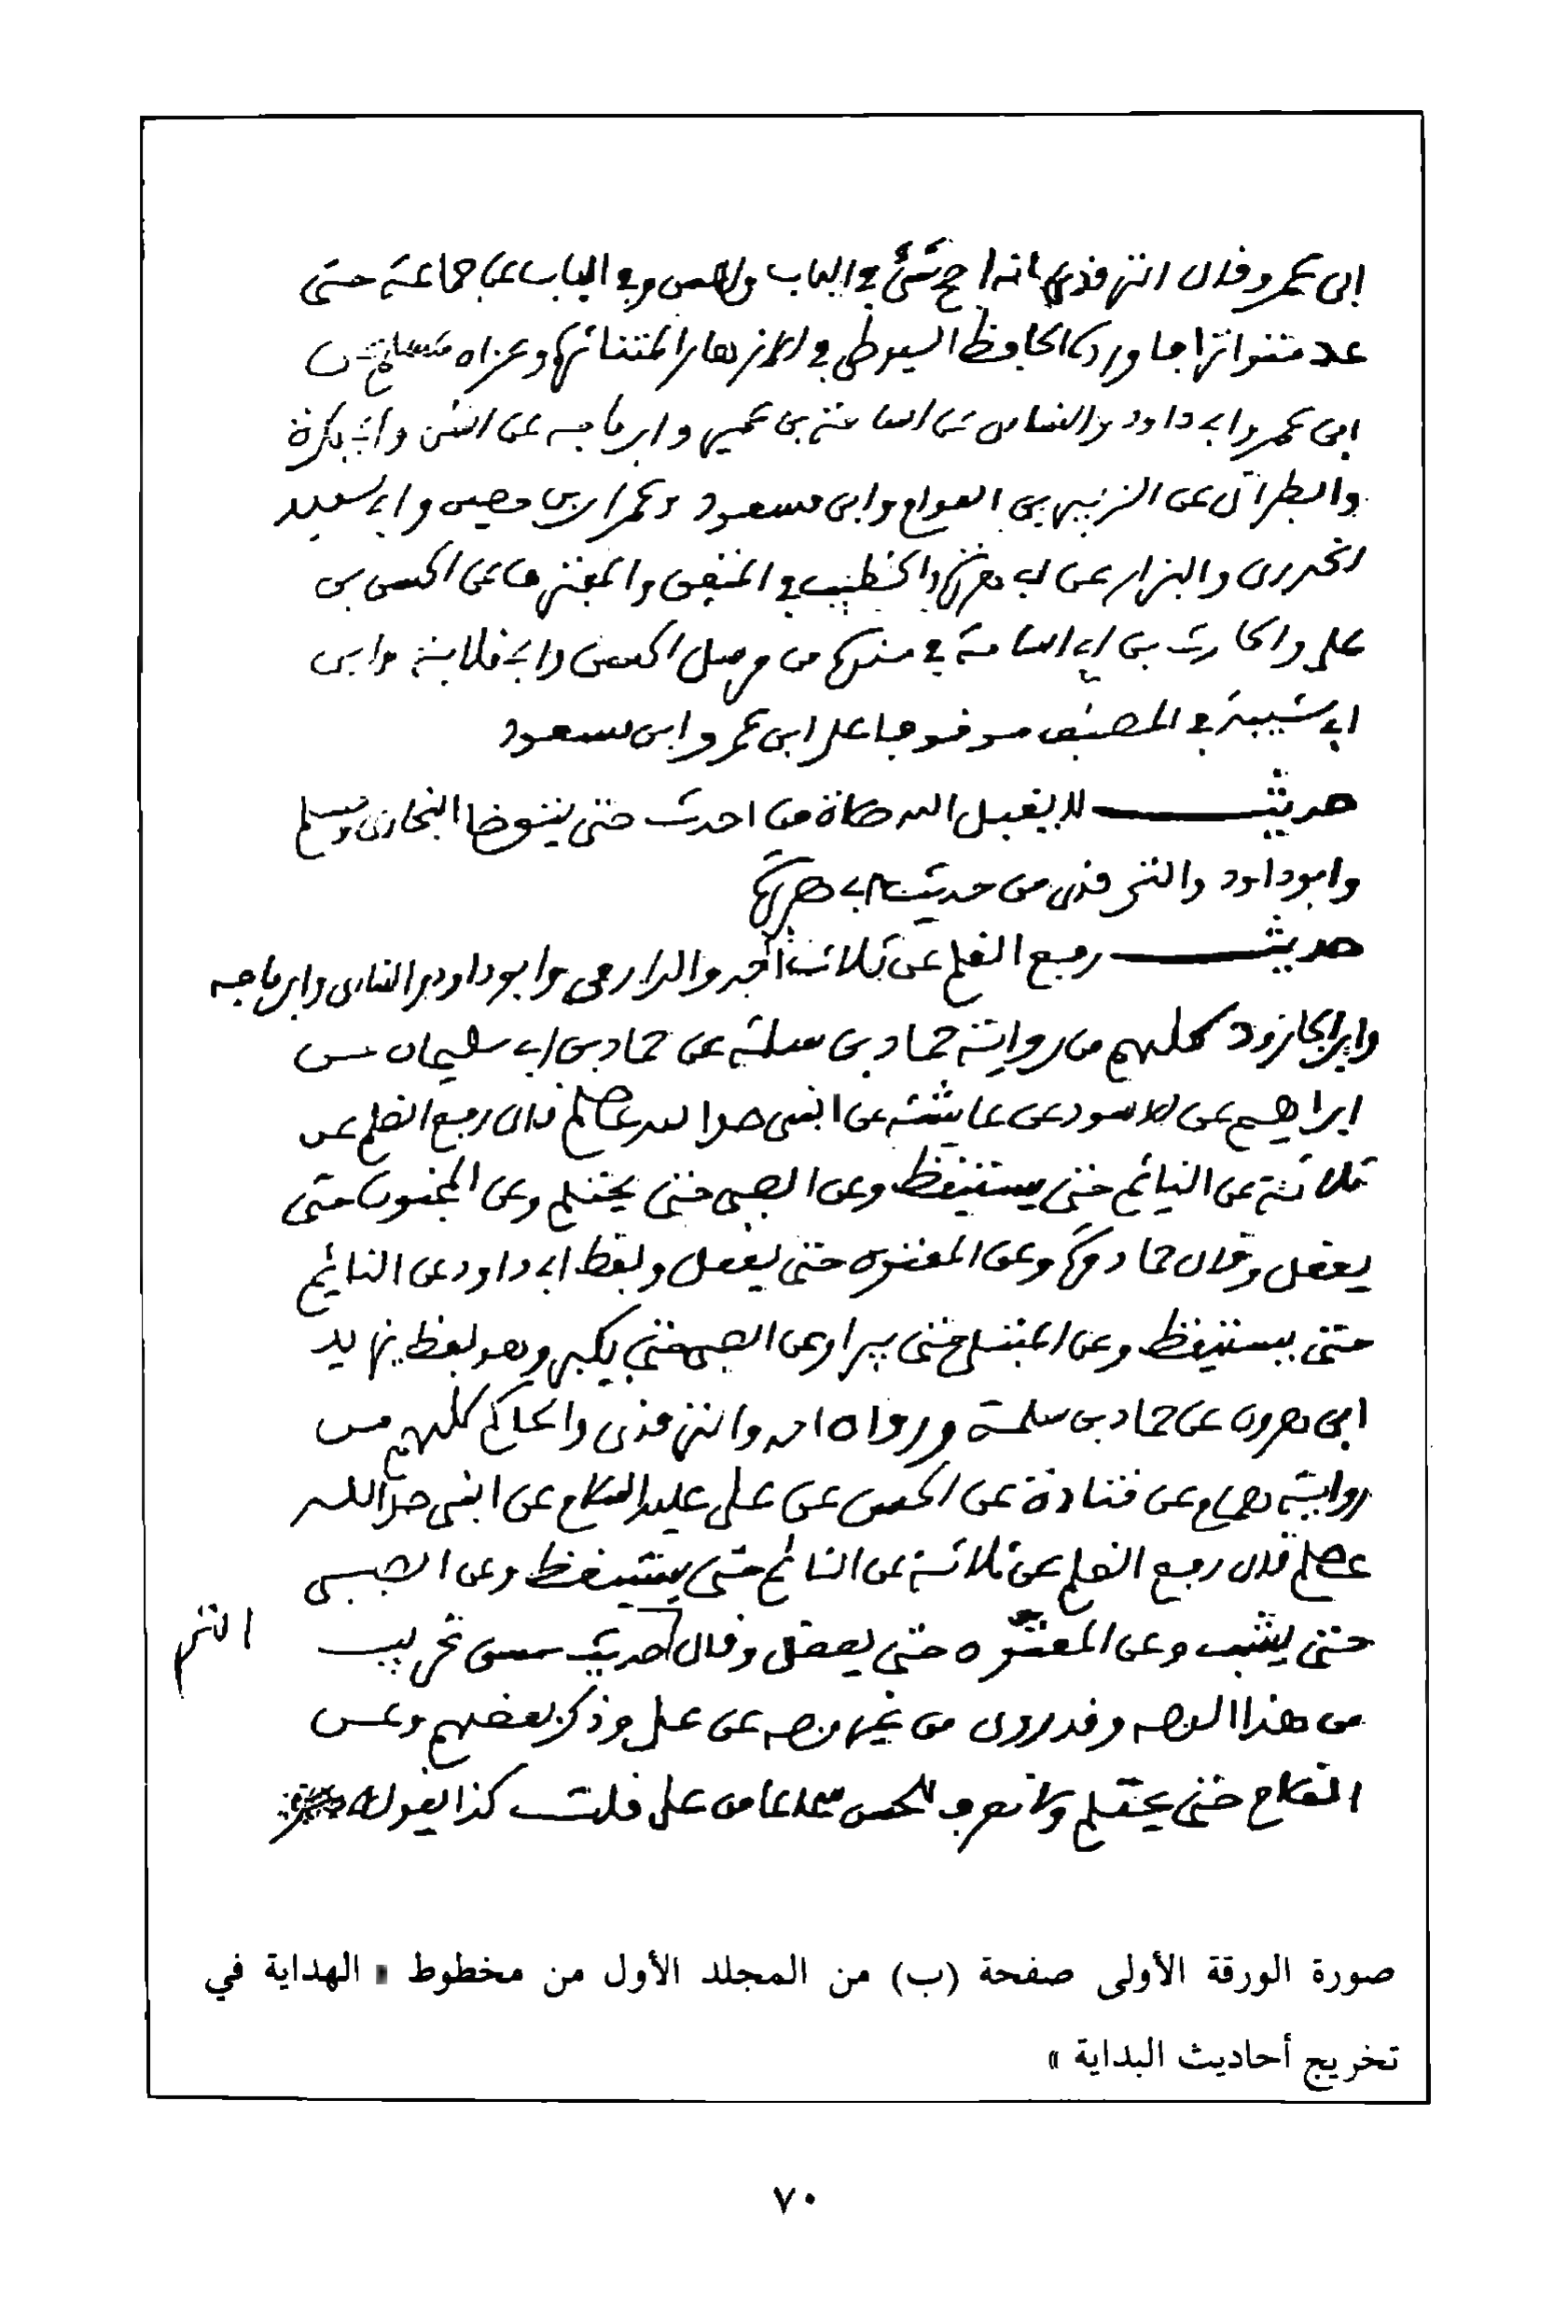 ابن عمر وقال الترمذي انه اصح شيء في الباب واحسن وفي الباب عن جماعة حتى
عد متواترا فاورده الحافظ السيوطي في الازهار المتناثرة وعزاه لمسلم عن
ابن عمر وابي داود والنسائي عن اسامة بن عمير وابن ماجه عن انس وابي بكرة
والطبراني عن الزبير بن العوام وابن مسعود وعمران بن حصين وابي سعيد
الخدري والبزار عن ابي هريرة والخطيب في المتفق والمفترق عن الحسن بن
علي والحارث بن ابي اسامة في مسنده من مرسل الحسن وابي قلابة وابن
ابي شيبة في المصنف موقوفا على ابن عمر وابن مسعود
حديث لا يقبل الله صلاة من احدث حتى يتوضا البخاري ومسلم
وابو داود والترمذي من حديث ابي هريرة
حديث رفع القلم عن ثلاث احمد والدارمي وابو داود والنسائي وابن ماجه
وابن الجارود كلهم من رواية حماد بن سلمة عن حماد بن ابي سليمان عن
ابراهيم عن الاسود عن عائشة عن النبي صلى الله عليه وسلم قال رفع القلم عن
ثلاثة عن النائم حتى يستيقظ وعن الصبي حتى يحتلم وعن المجنون حتى
يعقل وقال حماد مرة وعن المعتوه حتى يعقل ولفظ ابي داود عن النائم
حتى يستيقظ وعن المبتلى حتى يبرا وعن الصبي حتى يكبر وهو لفظ يزيد
ابن هرون عن حماد بن سلمة ورواه احمد والترمذي والحاكم كلهم من
رواية همام عن قتادة عن الحسن عن علي عليه السلام عن النبي صلى الله
عليه وسلم قال رفع القلم عن ثلاثة عن النائم حتى يستيقظ وعن الصبي
حتى يشب وعن المعتوه حتى يعقل وقال الترمذي حديث حسن غريب
من هذا الوجه وقد روي من غير وجه عن علي وذكر بعضهم وعن
الغلام حتى يحتلم ولا نعرف للحسن سماعا من علي قلت كذا يقول
صورة الورقة الأولى صفحة (ب) من المجلد الأول من مخطوط « الهداية في
تخريج أحاديث البداية »
٧٠